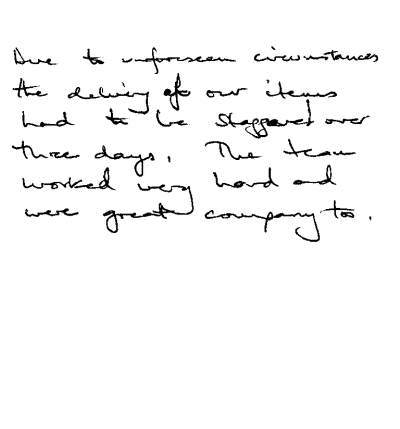 Due to unforeseen circumstances
the delivery of our items
had to be staggered over
three days. The team
worked very hard and
were great company too.